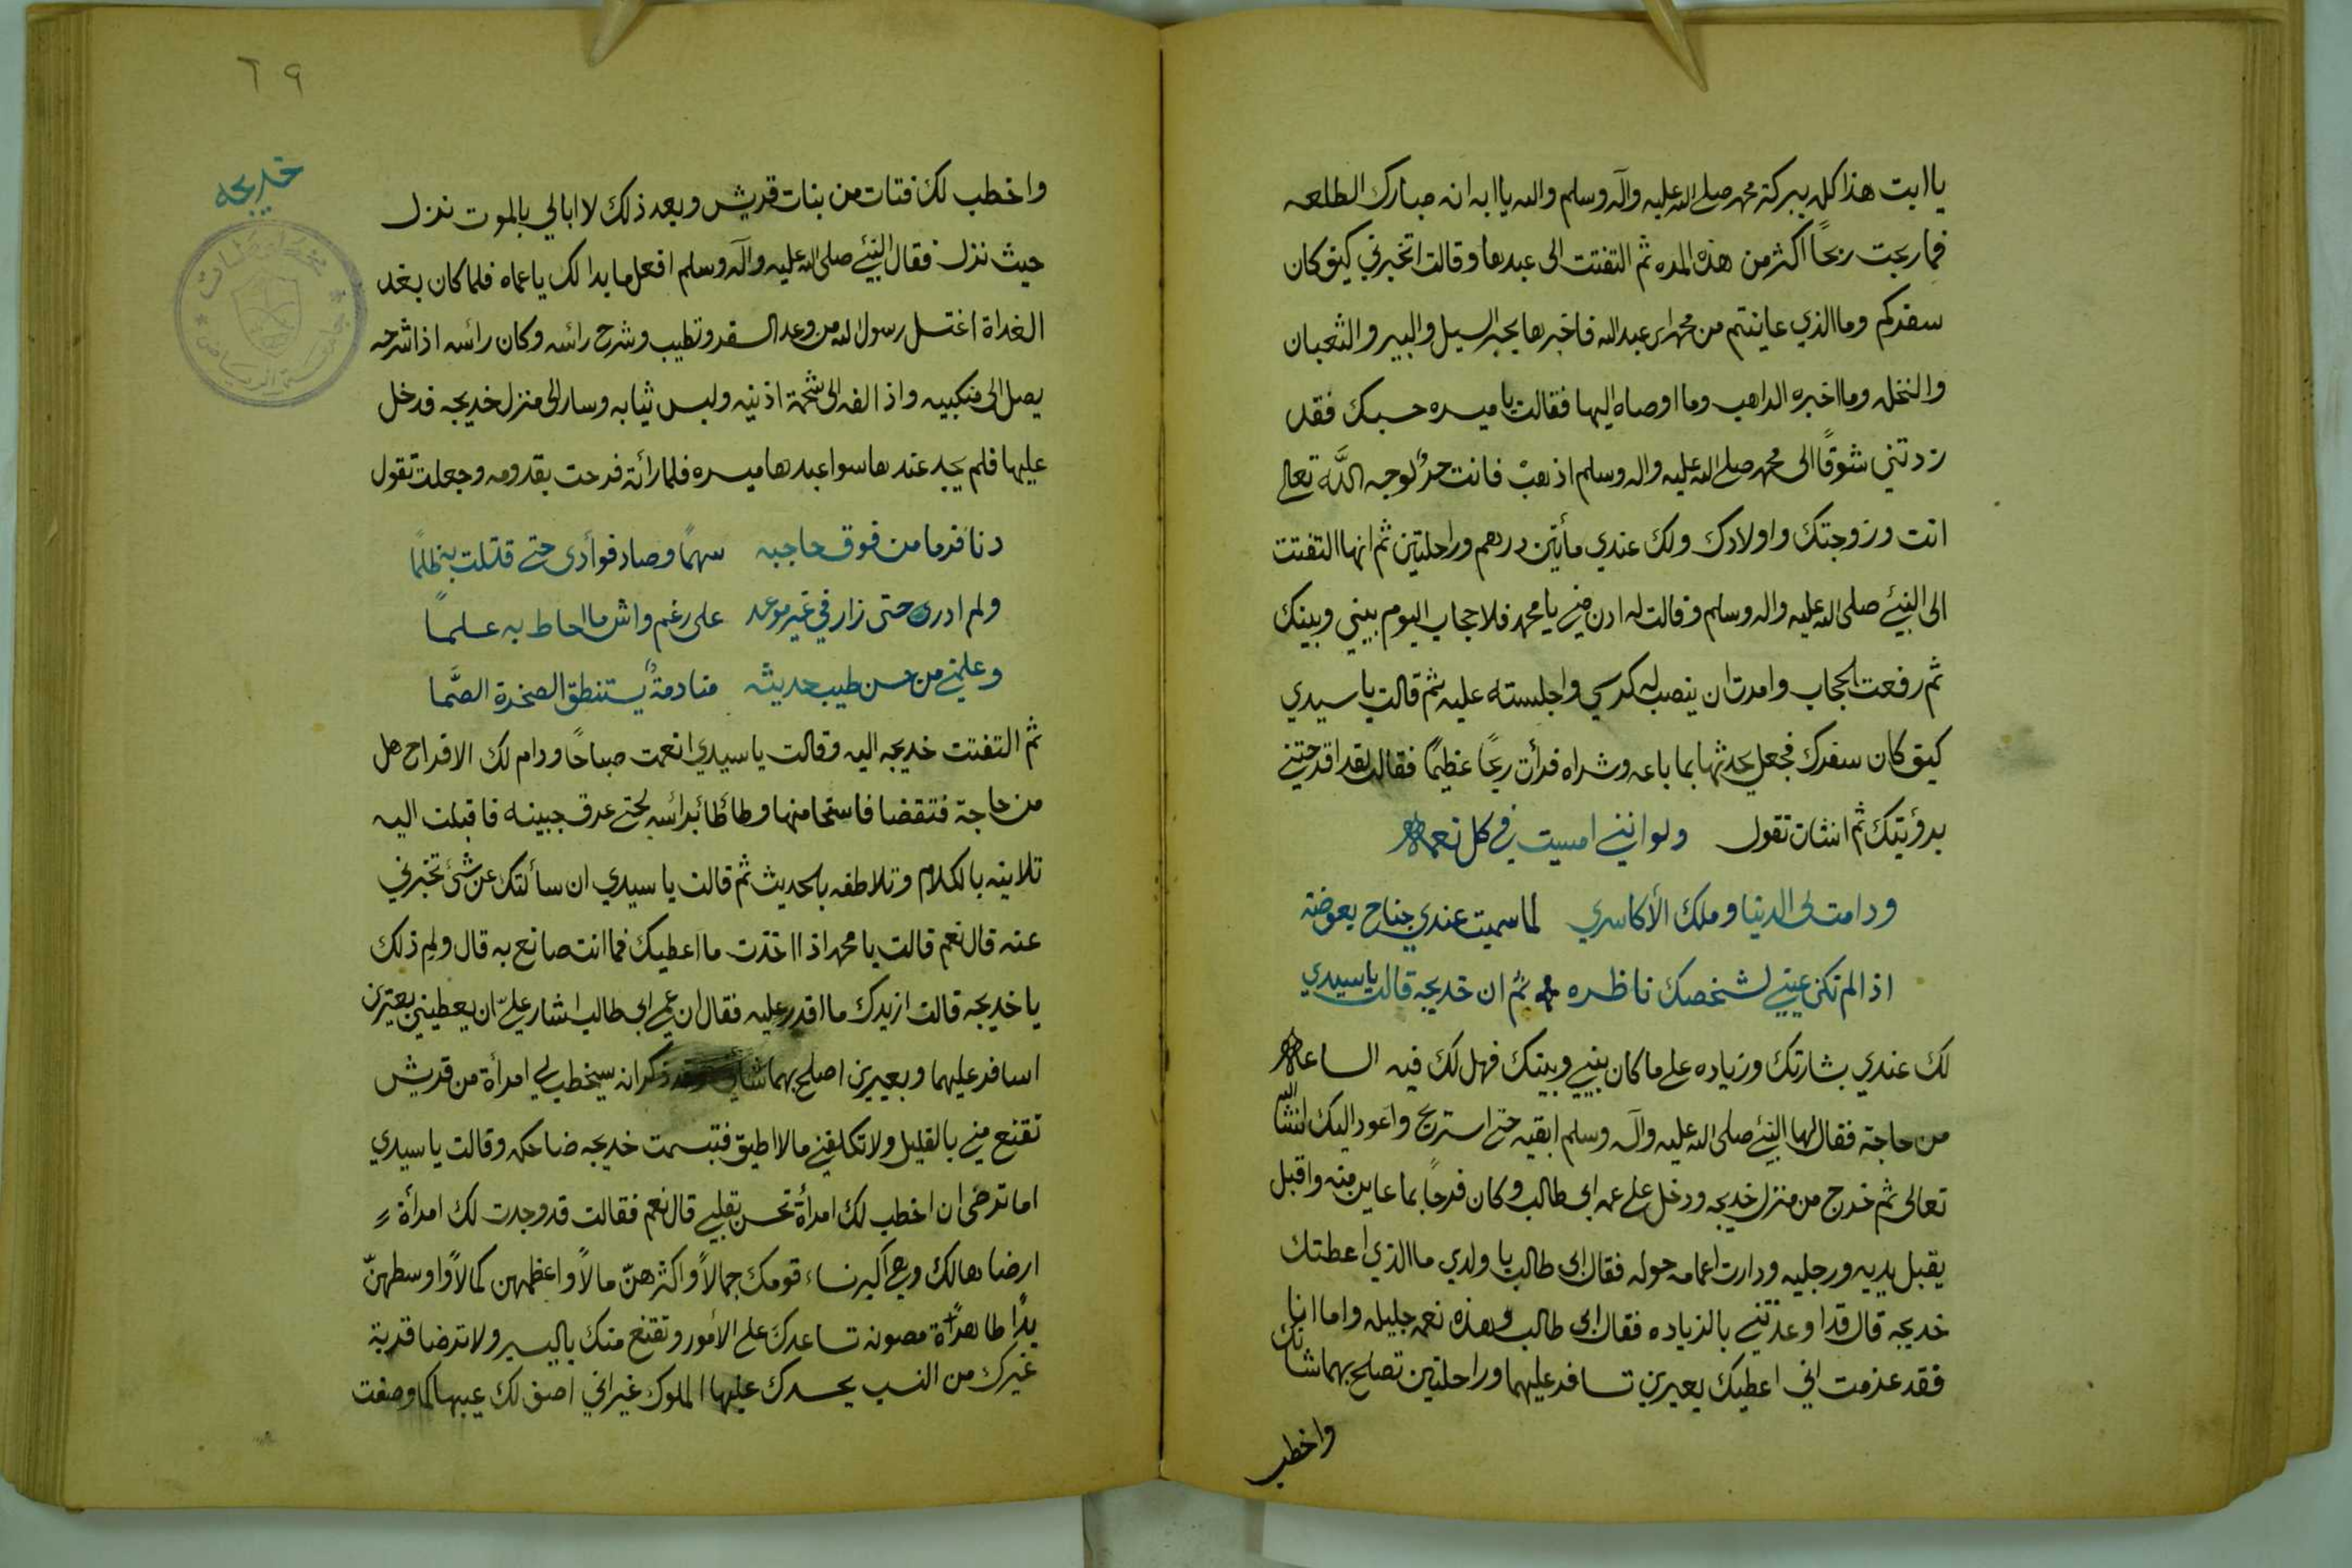 يا ابت هذا كله ببركة محمد صلى الله عليه وآله وسلم والله يا ابه انه مبارك الطلعه
فما ربحت ربحاً اكثر من هذه المده ثم التفتت الى عبدها وقالت اتخبرني كيف كان
سفركم وما الذي عاينتم من محمد ابن عبد الله فاخبرها بخبر السيل والبير والثعبان
والنخله وما اخبره الراهب وما اوصاه اليها فقالت يا ميسره حسبك فقد
زدتني شوقاً الى محمد صلى الله عليه واله وسلم اذهب فانت حرٌ لوجه الله تعالى
انت وزوجتك واولادك ولك عندي مأتين درهم وراحلتين ثم انها التفتت
الى النبي صلى الله عليه واله وسلم وقالت له ادن مني يا محمد فلا حجاب اليوم بيني وبينك
ثم رفعت الحجاب وامرت ان ينصب له كرسي واجلسته عليه ثم قالت يا سيدي
كيف كان سفرك فجعل يحدثها بما باعه وشراه فرأت ربحاً عظيماً فقالت لقد افرحتني
برؤيتك ثم انشات تقول ولو انني امسيت في كل نعمة
ودامت لي الدنيا وملك الأكاسري لما سميت عندي جناح بعوضة
اذا لم تكن عيني لشخصك ناظره ثم ان خديجه قالت يا سيدي
لك عندي بشارتك وزياده على ما كان بيني وبينك فهل لك فيه الساعة
من حاجة فقال لها النبي صلى الله عليه وآله وسلم ابقيه حتى استريح واعود اليك انشا الله
تعالى ثم خرج من منزل خديجه ودخل على عمه ابي طالب وكان فرحاً بما عاين منه واقبل
يقبل يديه ورجليه ودارت اعمامه حوله فقال ابي طالب يا ولدي ما الذي اعطتك
خديجه قال قد اوعدتني بالزياده فقال ابي طالب وهذه نعمه جليله واما انا
فقد عزمت اني اعطيك بعيرين تسافر عليهما وراحلتين تصلح بهما شانك
واخطب
٦٩
خديجه
واخطب لك فتات من بنات قريش وبعد ذلك لا ابالي بالموت نزل
حيث نزل فقال النبي صلى الله عليه وآله وسلم افعل ما بدا لك يا عماه فلما كان بغد
الغداة اغتسل رسول الله من وعد السفر وتطيب وشرح رائسه وكان رائسه اذا شرحه
يصل الى منكبيه واذا لفه الى شحمة اذنيه ولبس ثيابه وسار الى منزل خديجه فدخل
عليها فلم يجد عندها سوا عبدها ميسره فلما رأته فرحت بقدومه وجعلت تقول
دنا فرما من فوق حاجبه سهماً وصاد فوأدى حتى قتلت به ظلماً
ولم ادرى حتى زار في غير موعد على رغم واش ما احاط به علماً
وعلمني من حسن طيب حديثه منادمةً يستنطق الصخرة الصّما
ثم التفتت خديجه اليه وقالت يا سيدي انعمت صباحاً ودام لك الافراح هل
من حاجة فتقضا فاستحا منها وطائطا برائسه حتى عرق جبينه فاقبلت اليه
تلاينه بالكلام وتلاطفه بالحديث ثم قالت يا سيدي ان سألتك عن شئ تخبرني
عنه قال نعم قالت يا محمد اذا اخذت ما اعطيك فما انت صانع به قال ولم ذلك
يا خديجه قالت ازيدك ما اقدر عليه فقال ان عمي ابي طالب اشار عليّ ان يعطيني بعيرين
اسافر عليهما وبعيرين اصلح بهما شاني وقد ذكر انه سيخطب لي امرأة من قريش
تقنع مني بالقليل ولا تكلفني ما لا اطيق فتبسمت خديجه ضاحكه وقالت يا سيدي
اما ترضى ان اخطب لك امرأة تحسن بقلبي قال نعم فقالت قد وجدت لك امرأة
ارضاها لك وهي اكبر نساء قومك جمالاً واكثرهنّ مالاً واعظمهن كمالاً واوسطهنّ
يداً طاهرة مصونه تساعدك على الأمور وتقنع منك باليسير ولا ترضا قربة
غيرك من النسب يحسدك عليها الملوك غير اني اصف لك عيبها كما وصفت